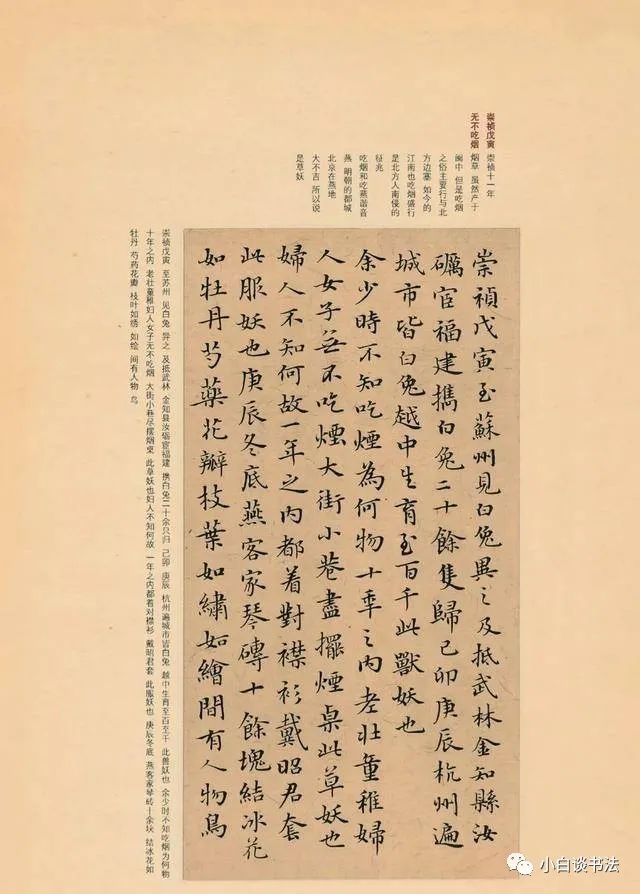 崇祯戊寅 崇祯十一年
无不吃烟 烟草 虽然产于
闽中 但是吃烟
之俗主要行与北
方边塞 如今的
江南也吃烟盛行
是北方人南侵的
征兆
吃烟和吃燕谐音
燕 明朝的都城
北京在燕地
大不吉 所以说
是草妖
崇禎戊寅至蘇州見白兔異之及抵武林金知縣汝
礪宦福建攜白兔二十餘隻歸己卯庚辰杭州遍
城市皆白兔越中生育至百千此獸妖也
余少時不知吃煙為何物十年之内老壯童稚婦
人女子無不吃煙大街小巷盡擺煙桌此草妖也
婦人不知何故一年之内都着對襟衫戴昭君套
此服妖也庚辰冬底燕客家琴磚十餘塊結冰花
如牡丹芍藥花瓣枝葉如繡如繪間有人物鳥
崇祯戊寅 至苏州 见白兔 异之 及抵武林 金知县汝砺宦福建 携白兔二十余只归 己卯 庚辰 杭州遍城市皆白兔 越中生育至百至千 此兽妖也 余少时不知吃烟为何物
十年之内 老壮童稚妇人女子无不吃烟 大街小巷尽摆烟桌 此草妖也妇人不知何故 一年之内都着对襟衫 戴昭君套 此服妖也 庚辰冬底 燕客家琴砖十余块 结冰花如
牡丹 芍药花瓣 枝叶如绣 如绘 间有人物 鸟
小白谈书法